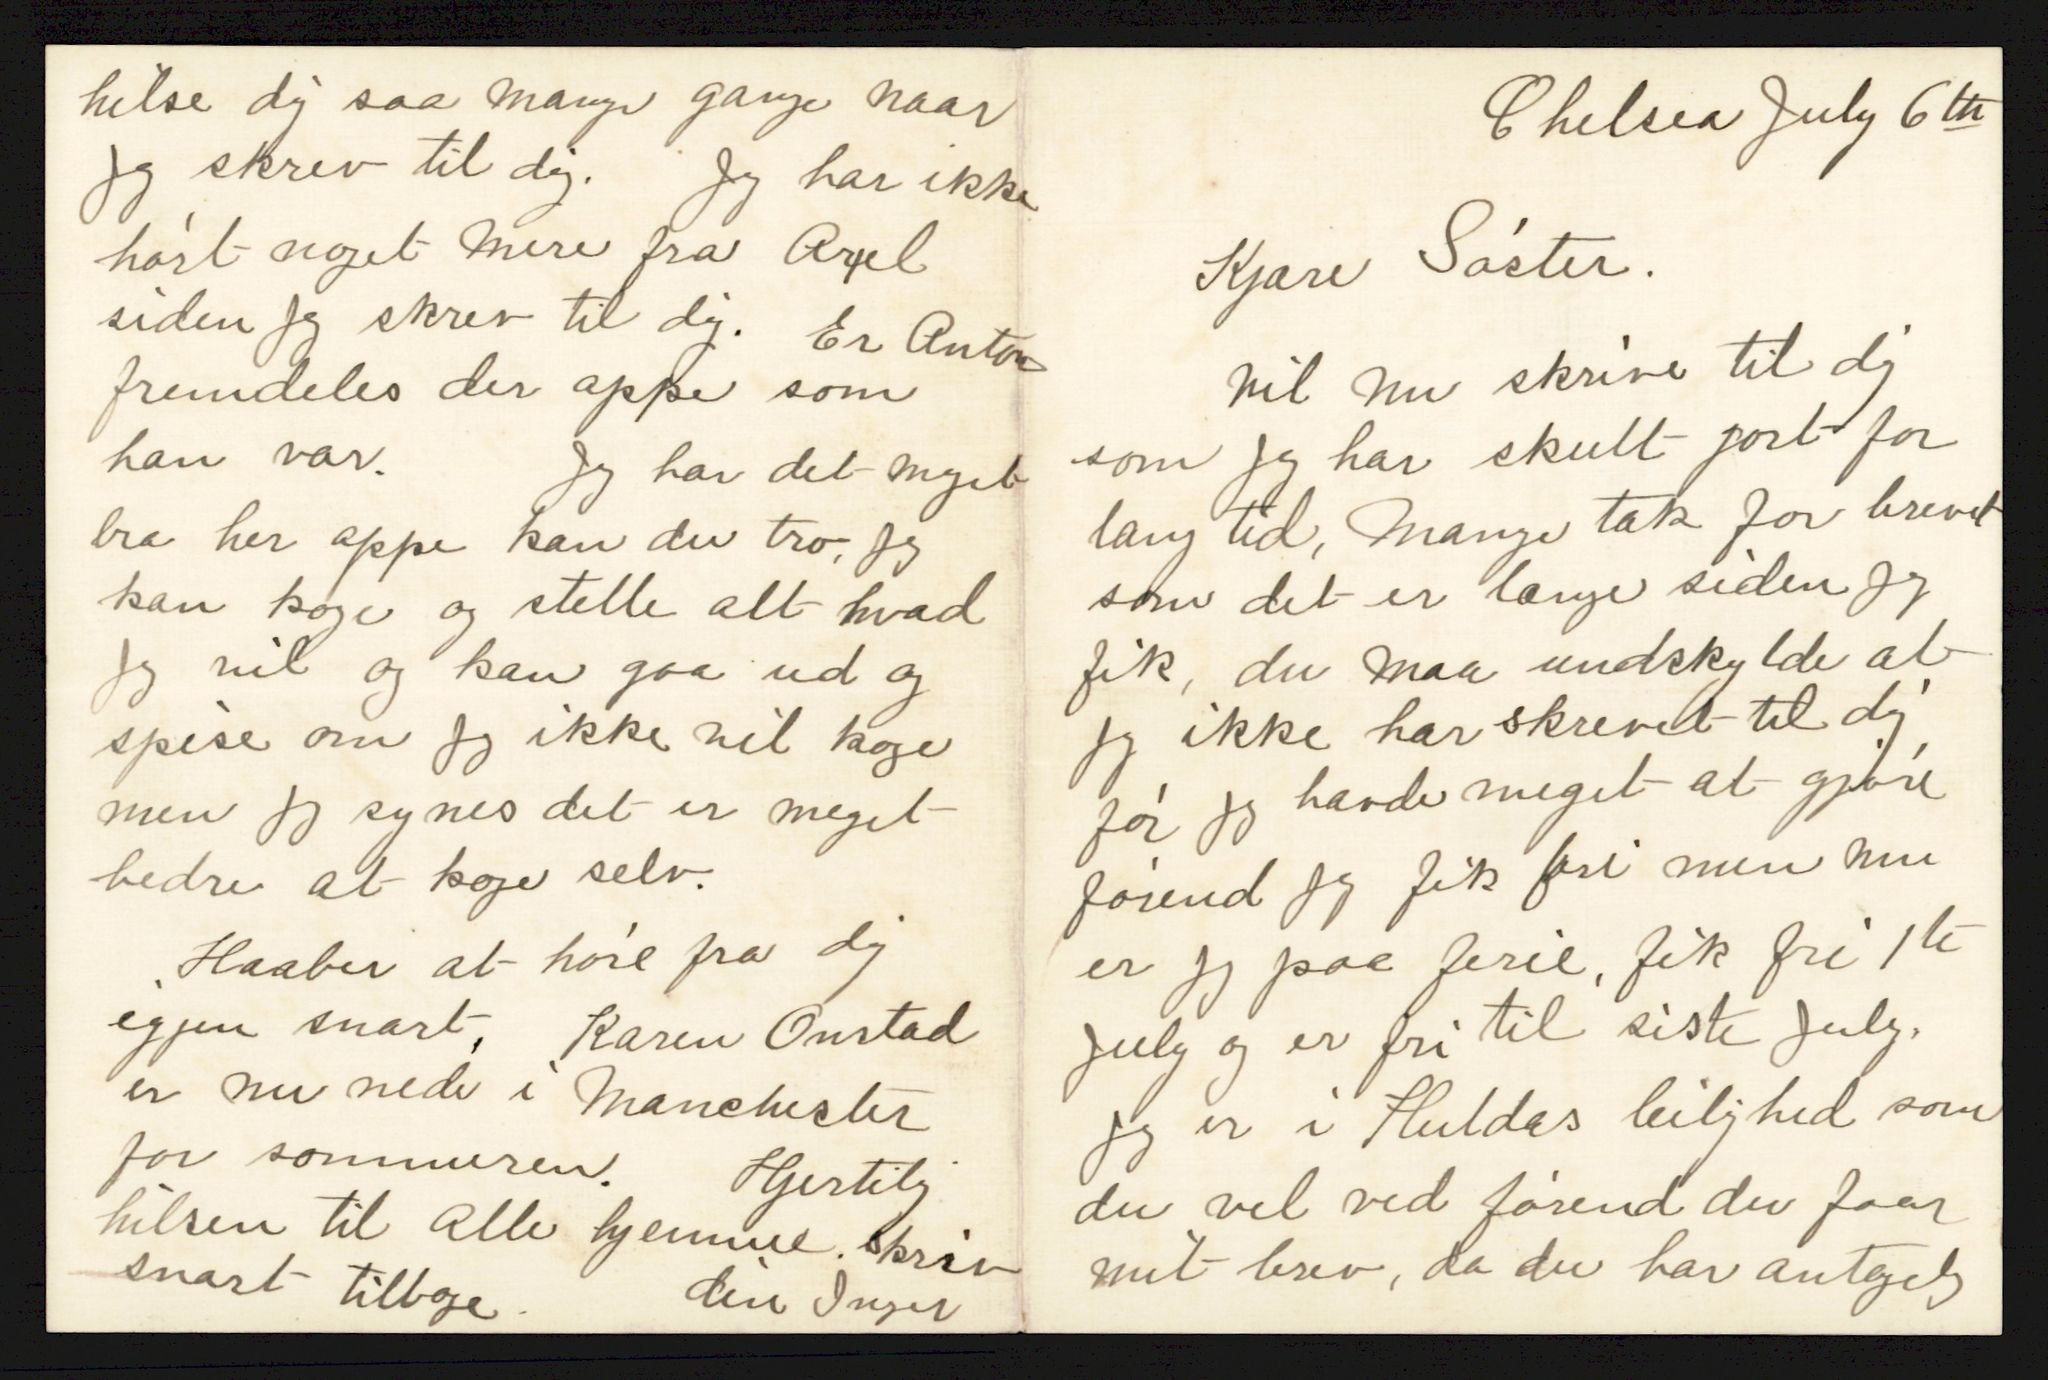 Chelsea July 6th
Kjære Søster.
Vil nu skrive til dig
som jeg har skullt gort for
lang tid, Mange tak for brevet
som det er længe siden jeg
fik, du maa undskylde at
jeg ikke har skrevet til dig
før jeg havde meget at gjøre
førend jeg fik fri men nu
er jeg paa ferie, fik fri 1te
July og er fri til siste July.
jeg er i Huldas leilighed som
du vel ved førend du faar
mit brev, da du har antagelig
hilse dig saa mange gange naar
jeg skrev til dig. Jeg har ikke
hørt noget mere fra Axel
siden jeg skrev til dig. Er Anton
fremdeles der oppe som
han var. Jeg har det meget
bra her oppe kan du tro, jeg
kan koge og stelle alt hvad
jeg vil og kan gaa ud og
spise om jeg ikke vil koge
men jeg synes det er meget
bedre at koge selv.
Haaber at høre fra dig
igjen snart, Karen Onstad
er nu nede i Manchester
for sommeren. Hjertelig
hilsen til alle hjemme. skriv
snart tilbage. din Inger